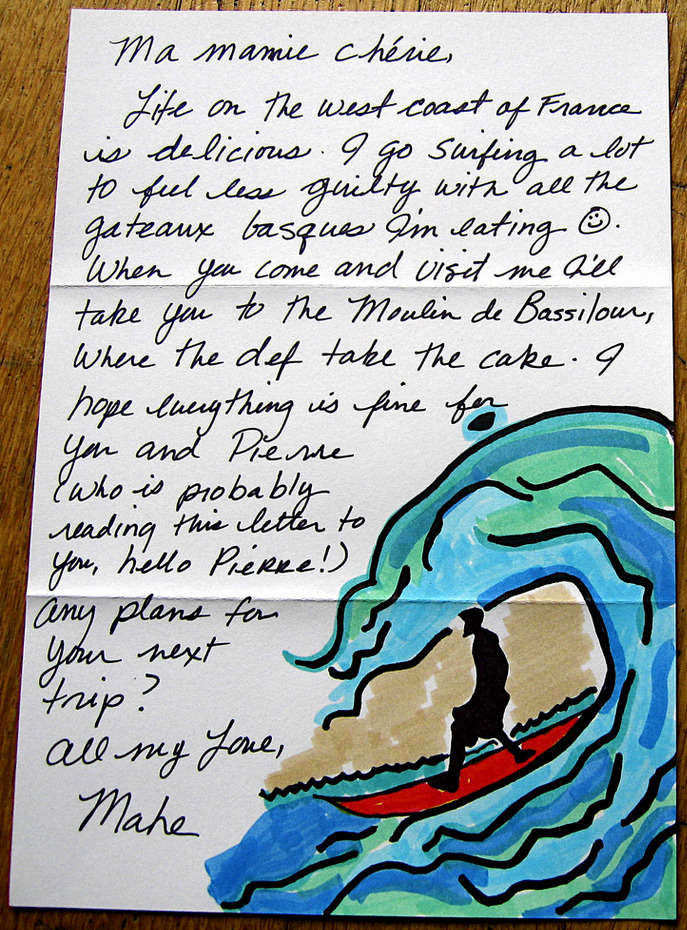 Ma mamie chérie,
Life on the west coast of France
is delicious. I go surfing a lot
to feel less guilty with all the
gateaux basques I'm eating ☺.
When you come and visit me I'll
take you to the Moulin de Bassilour,
where the def take the cake. I
hope everything is fine for
you and Pierre
(who is probably
reading this letter to
you, hello Pierre!)
Any plans for
your next
trip?
All my Love,
Mahe